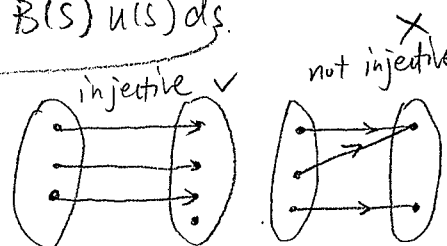 B(s) u(s) ds.
injective ✓
not injective ×